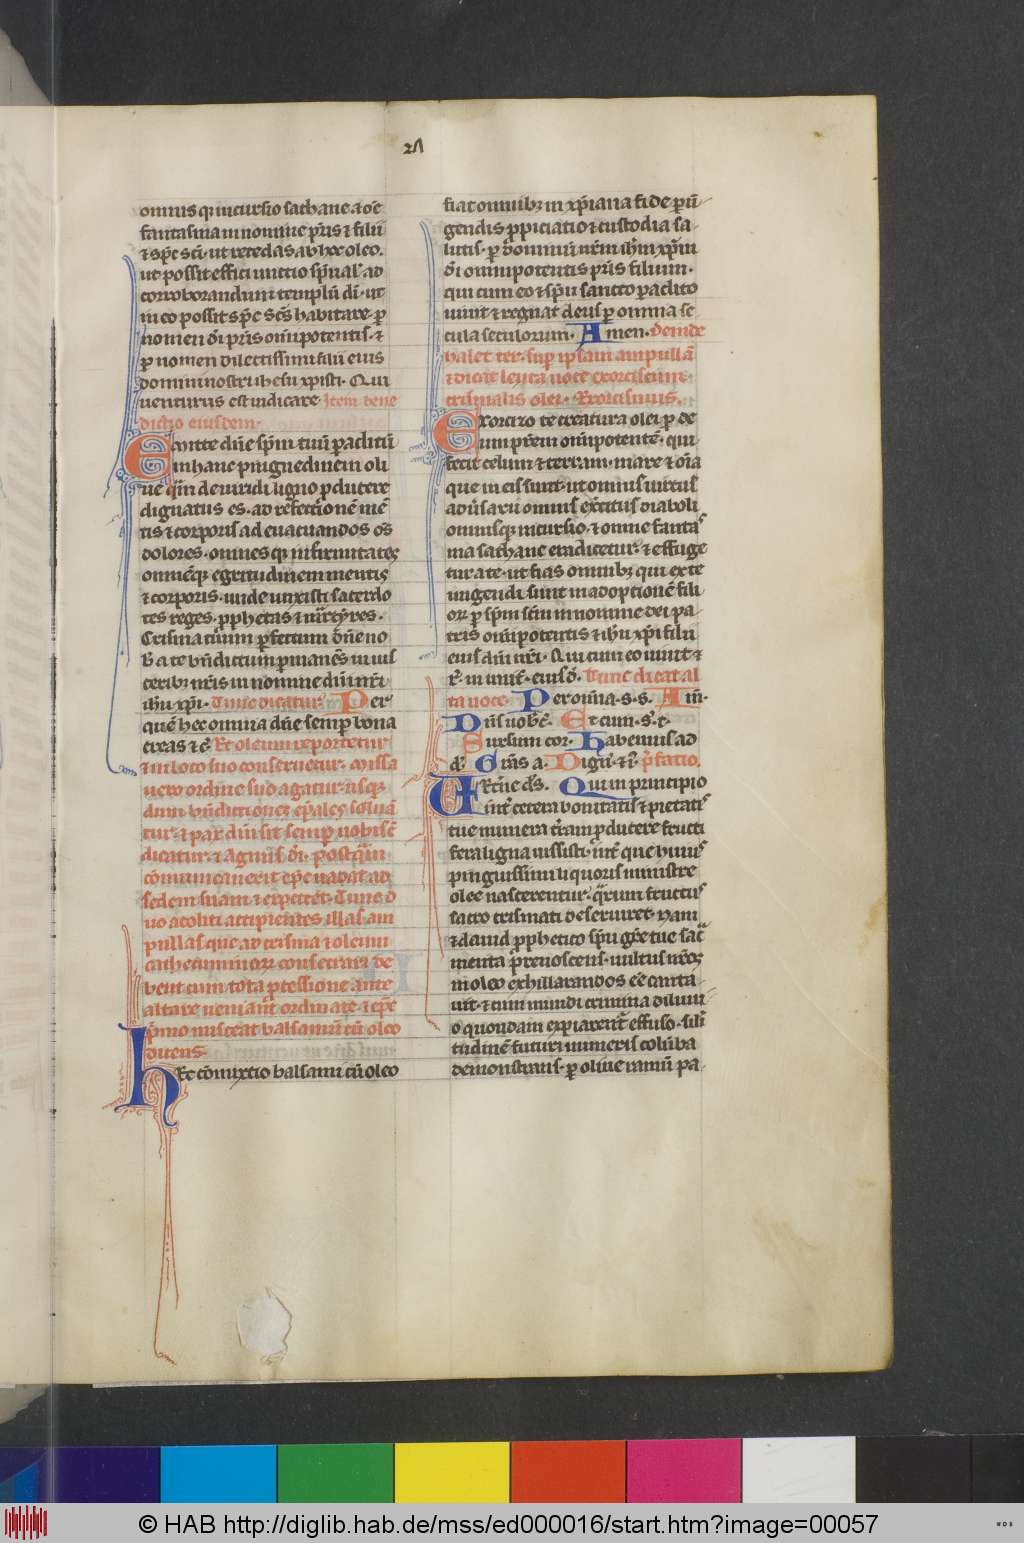 27
omnis q incursio sathane & oē
fantasma in nomine pr̄is & filii
& sp̄c sc̄i. ut recedas ab hoc oleo.
ut possit effici unctio sp̄ualˢ ad
corroborandum templū di. ut
in eo possit sp̄c sc̄s habitare. p
nomen di pr̄is om̄ipotentis. &
p nomen dilectissimi filii eius
domini nostri ihesu xpisti. Qui
uenturus est iudicare Item bene
dictio eiusdem.
Emitte dn̄e sp̄m tuū paclitū
in hanc pinguedinem oli
ue qm̄ de uiridi ligno pducere
dignatus es. ad refectionē mē
tis & corporis ad euacuandos os
dolores. omnes q infirmitates
omēq egritudinem mentis
& corporis. unde unxisti sacerdo
tes reges. pphetas & mr̄tyres.
Crisma tuum pfectum dn̄e no
b a te bn̄dictum pmanēs in uis
ceribz nr̄is in nomine dn̄i nr̄i
ihu xpi. Tunc dicatur. Per
quē hec omnia dn̄e semp bona
creas & c̄. Et oleum reportetur
& in loco suo conseruetur. missa
uero ordine suo agatur usq
dum bn̄dictiones ep̄ales soluā
tur. & pax dn̄i sit semp uobisc̄
dicatur. & agnus di. postq̄m
cōmunicauerit ep̄c uadat ad
sedem suam & expectet. Tunc d
uo acoliti accipientes illas am
pullas que ad crisma & oleum
cathecuminorz consecrari de
bent cum tota pcessione ante
altare ueniant ordinate. & ep̄c
p̄mo misceat balsamū cū oleo
dicens.
Hec cōmixtio balsami cū oleo
fiat omnibz in xp̄iana fide p un̄
gendis ppiciatio & custodia sa
lutis. p dominum nr̄m ihm xpm
di omnipotentis pr̄is filium.
qui cum eo & sp̄u sancto paclito
uiuit & regnat deus p omnia se
cula seculorum. Amen. deinde
halet ter. sup ipsam ampullā
& dicat leuta uoce exorcismū
crismalis olei. Exorcismus.
Exorcizo te creatura olei p de
um pr̄em om̄ipotentē. qui
fecit celum & terram. mare & om̄ia
que in eis sunt. ut omnis uirtus
aduersarii omnis exercitus diaboli
omnisq incursio. & omne fantas
ma sathane eradicetur. & effuge
tur a te. ut fias omnibz qui ex te
ungendi sunt in adoptionē fili
orz p sp̄m sc̄m in nomine dei pa
tris om̄ipotentis & ihu xpi filii
eius dn̄i nr̄i. Qui cum eo uiuit &
r. in unit. eiusd. Tunc dicat al
ta uoce. Per om̄ia. s. s. Am̄.
Dn̄s uobc. Et cum. s. t.
Sursum cor. Habemus ad
d. Gr̄as a. Dignū. & i. p̄fatio.
UEtn̄e ds. Qui in principio
int cetera bonitatis & pietatis
tue munera tr̄am pducere fructi
fera ligna iussisti. int que huius
pinguissimi liquoris ministre
olee nascerentur. q̄rum fructus
sacro crismati deseruiret. Nam
& dauid pphetico sp̄u gr̄e tue sac̄
menta p̄noscens. uultus nr̄os
in oleo exhillarandos ēē canta
uit. & cum mundi crimina diluui
o quondam expiarent effuso. sili
tudinē futuri muneris colūba
demonstrans. p oliue ramū pa
© HAB http://diglib.hab.de/mss/ed000016/start.htm?image=00057